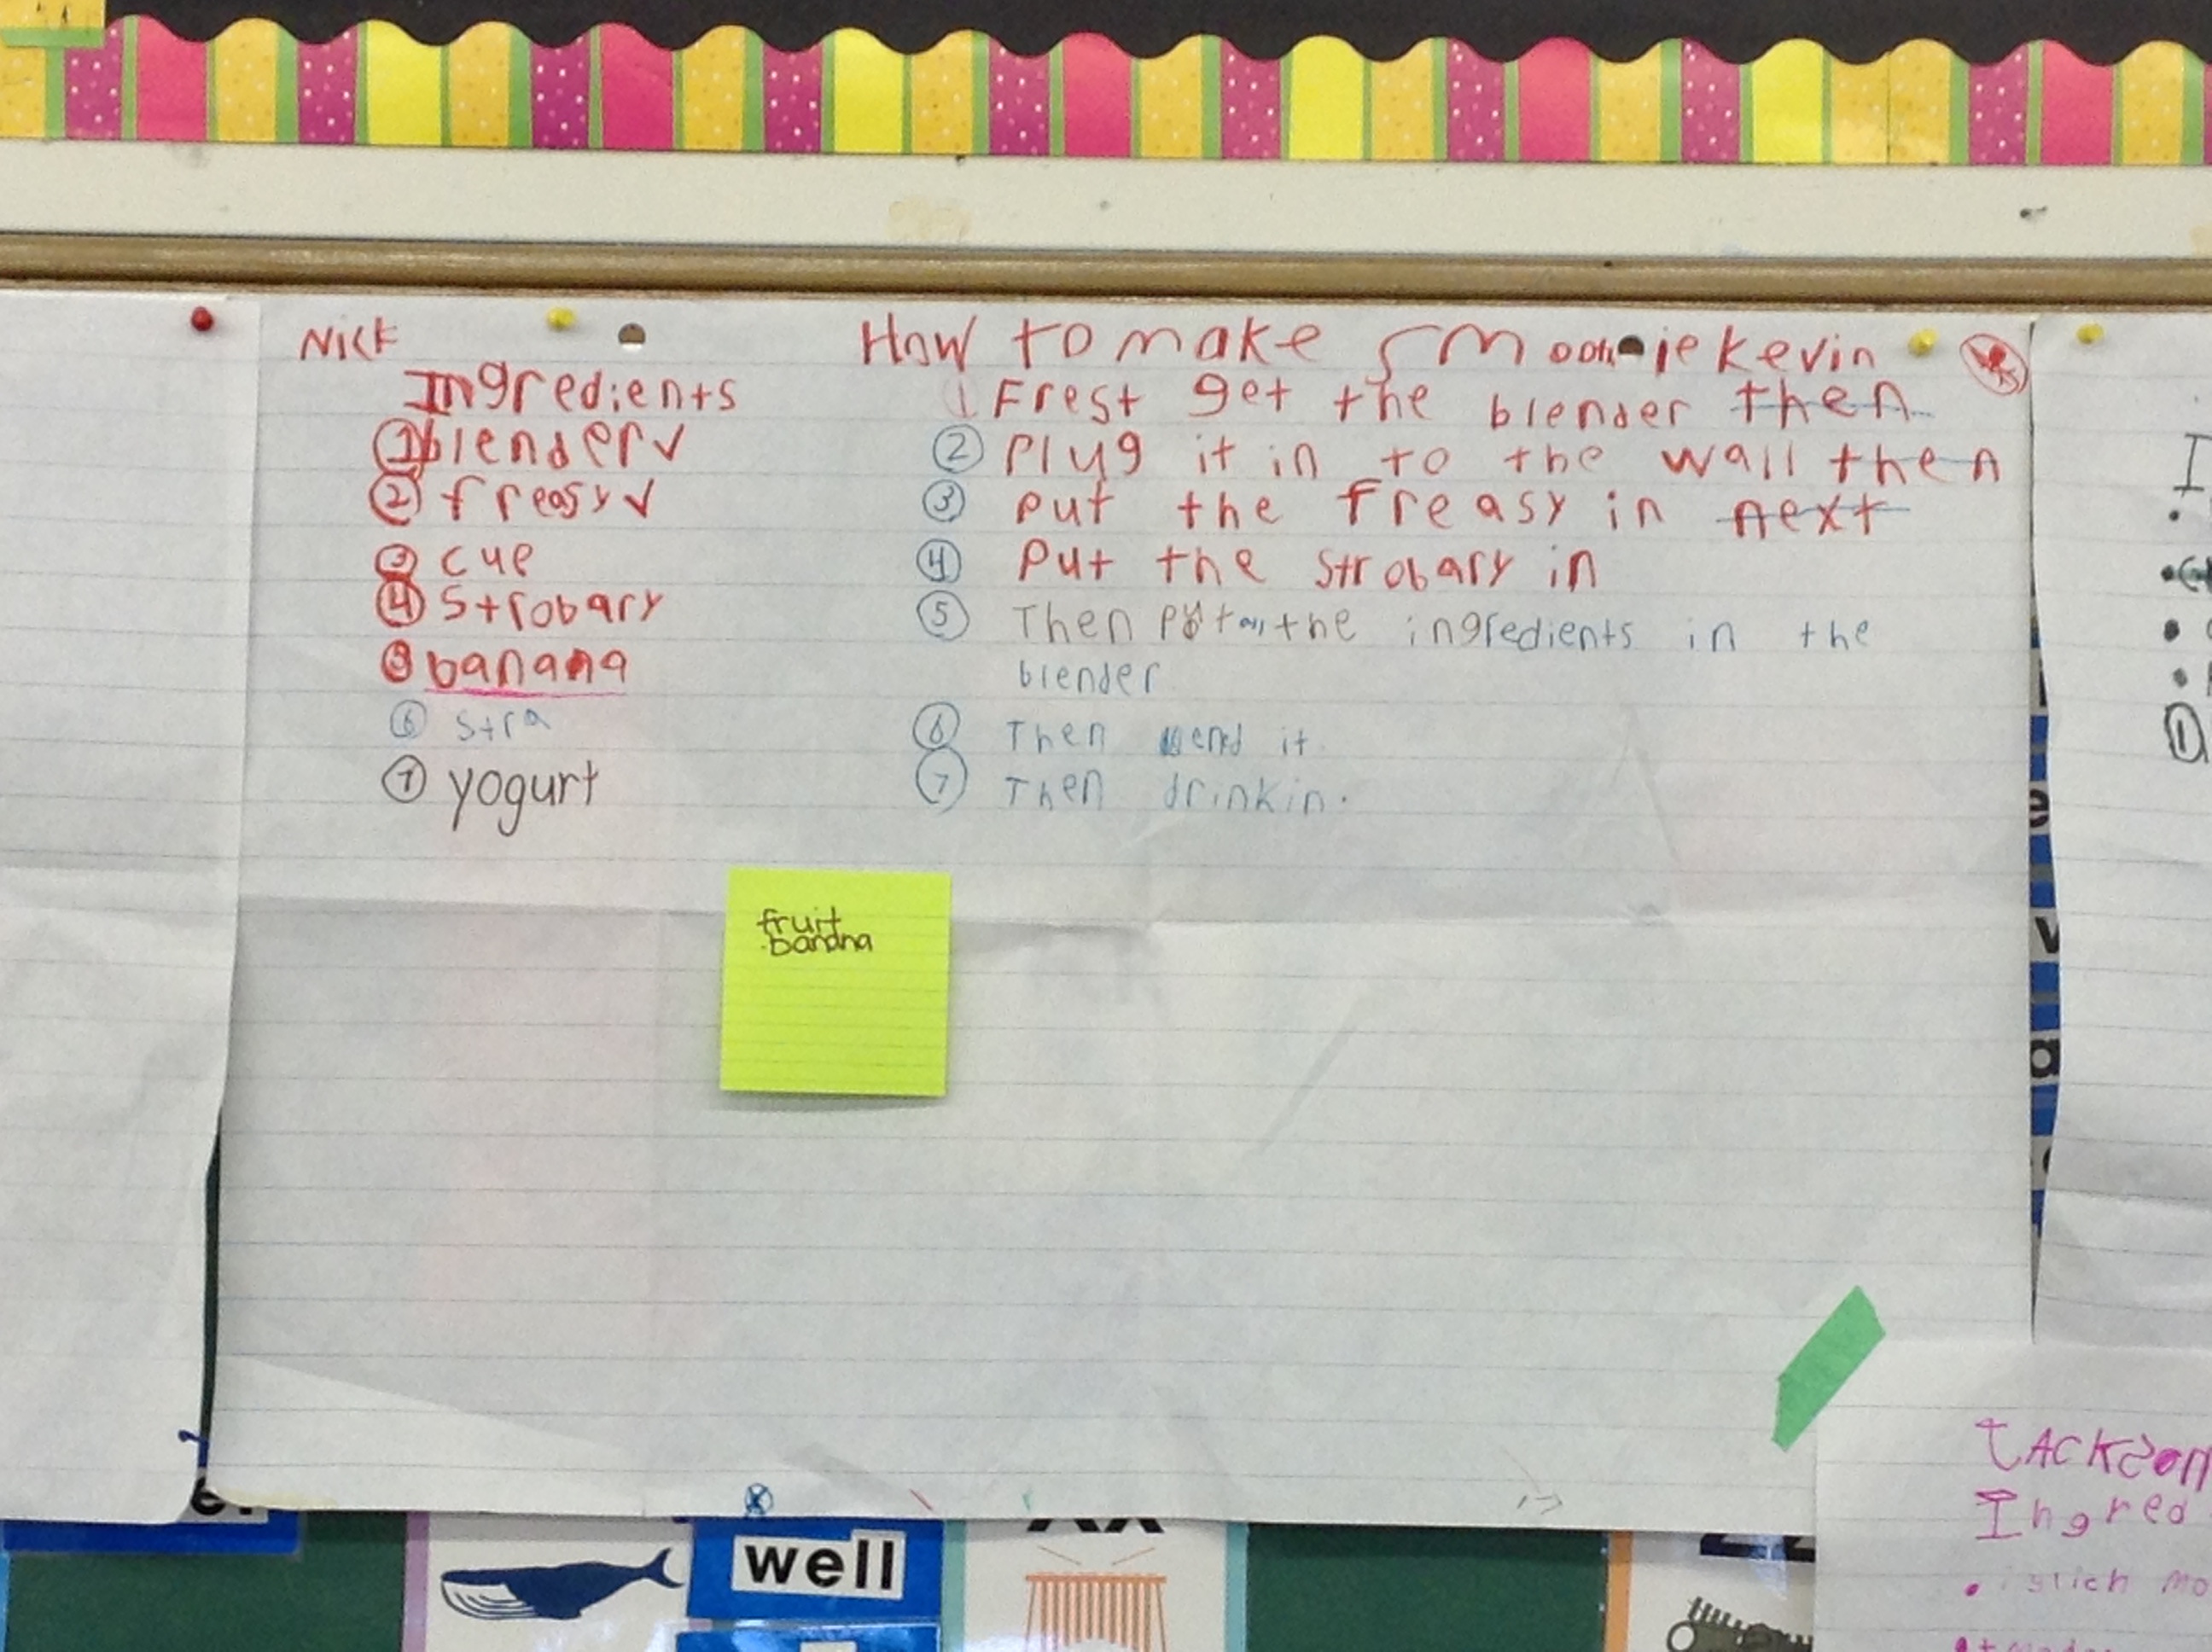 Nick
Ingredients
① blender ✓
② freasy ✓
③ cue
④ strobary
⑤ banana
⑥ stra
⑦ yogurt
How to make smoothie kevin
1 Frest get the blender then
② Plug it in to the wall then
③ put the freasy in next
④ Put the strobary in
⑤ Then put all the ingredients in the
blender
⑥ Then blend it
⑦ Then drinkin.
fruit
banana
e
v
a
Ingred
well